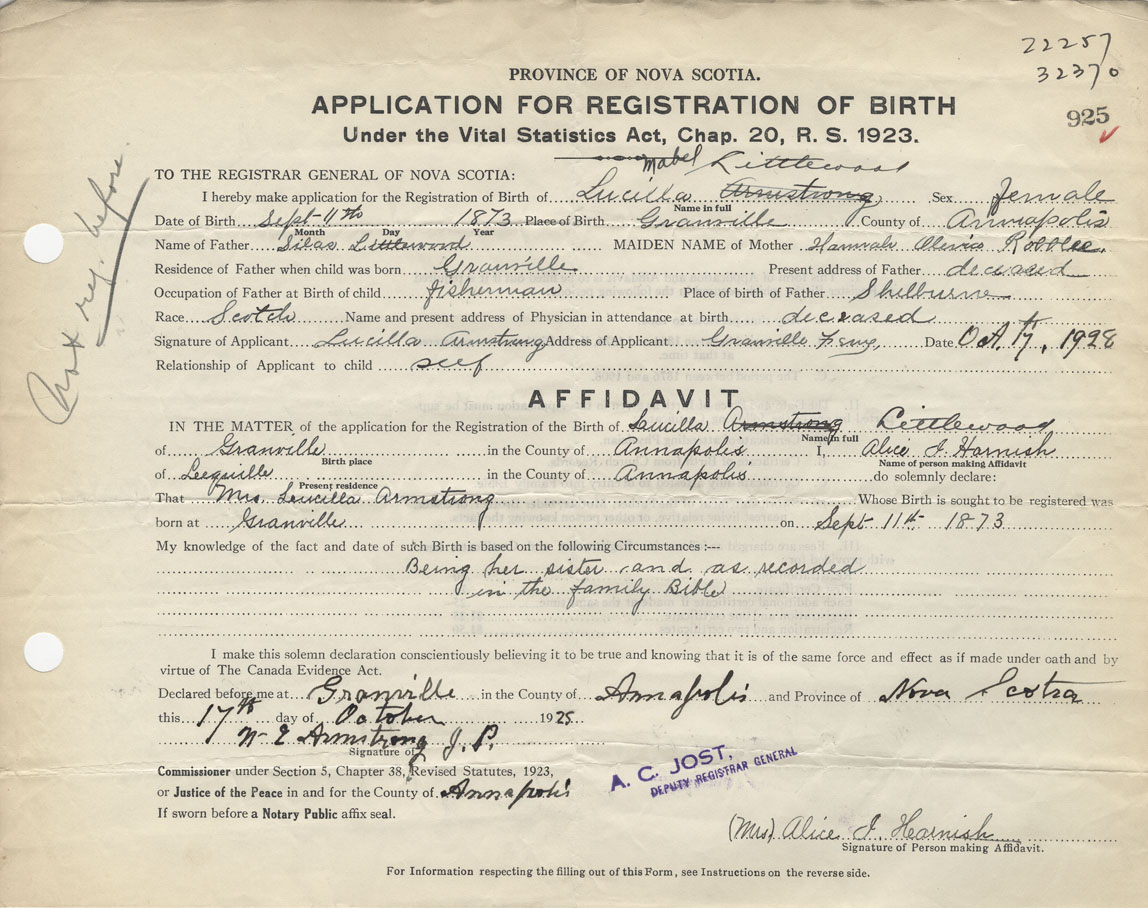 22257
32370
925
PROVINCE OF NOVA SCOTIA.
APPLICATION FOR REGISTRATION OF BIRTH
Under the Vital Statistics Act, Chap. 20, R. S. 1923.
Not reg. before
Mabel Littlewood
TO THE REGISTRAR GENERAL OF NOVA SCOTIA:
I hereby make application for the Registration of Birth of Lucilla Armstrong, Sex female
Name in full
Date of Birth Sept 11th 1873 Place of Birth Granville County of Annapolis
Month Day Year
Name of Father Silas Littlewood MAIDEN NAME of Mother Hannah Olivia
Residence of Father when child was born Granville Present address of Father deceased
Occupation of Father at Birth of child fisherman Place of birth of Father Shelburne
Race Scotch Name and present address of Physician in attendance at birth deceased
Signature of Applicant Lucilla Armstrong Address of Applicant Granville Ferry, Date Oct. 17th, 1928
Relationship of Applicant to child self
AFFIDAVIT
IN THE MATTER of the application for the Registration of the Birth of Lucilla Armstrong Littlewood
Name in full
of Granville in the County of Annapolis I, Alice I. Harnish
Birth place Name of person making Affidavit
of Lequille in the County of Annapolis do solemnly declare:
Present residence
That Mrs. Lucilla Armstrong Whose Birth is sought to be registered was
born at Granville on Sept 11th 1873
My knowledge of the fact and date of such Birth is based on the following Circumstances :---
Being her sister and as recorded
in the family Bible
I make this solemn declaration conscientiously believing it to be true and knowing that it is of the same force and effect as if made under oath and by
virtue of The Canada Evidence Act.
Declared before me at Granville in the County of Annapolis and Province of Nova Scotia
this 17th day of October 1925
W. E. Armstrong J. P.
Signature of
Commissioner under Section 5, Chapter 38, Revised Statutes, 1923,
or Justice of the Peace in and for the County of Annapolis
If sworn before a Notary Public affix seal.
A. C. JOST,
DEPUTY REGISTRAR GENERAL
(Mrs) Alice I. Harnish
Signature of Person making Affidavit.
For Information respecting the filling out of this Form, see Instructions on the reverse side.